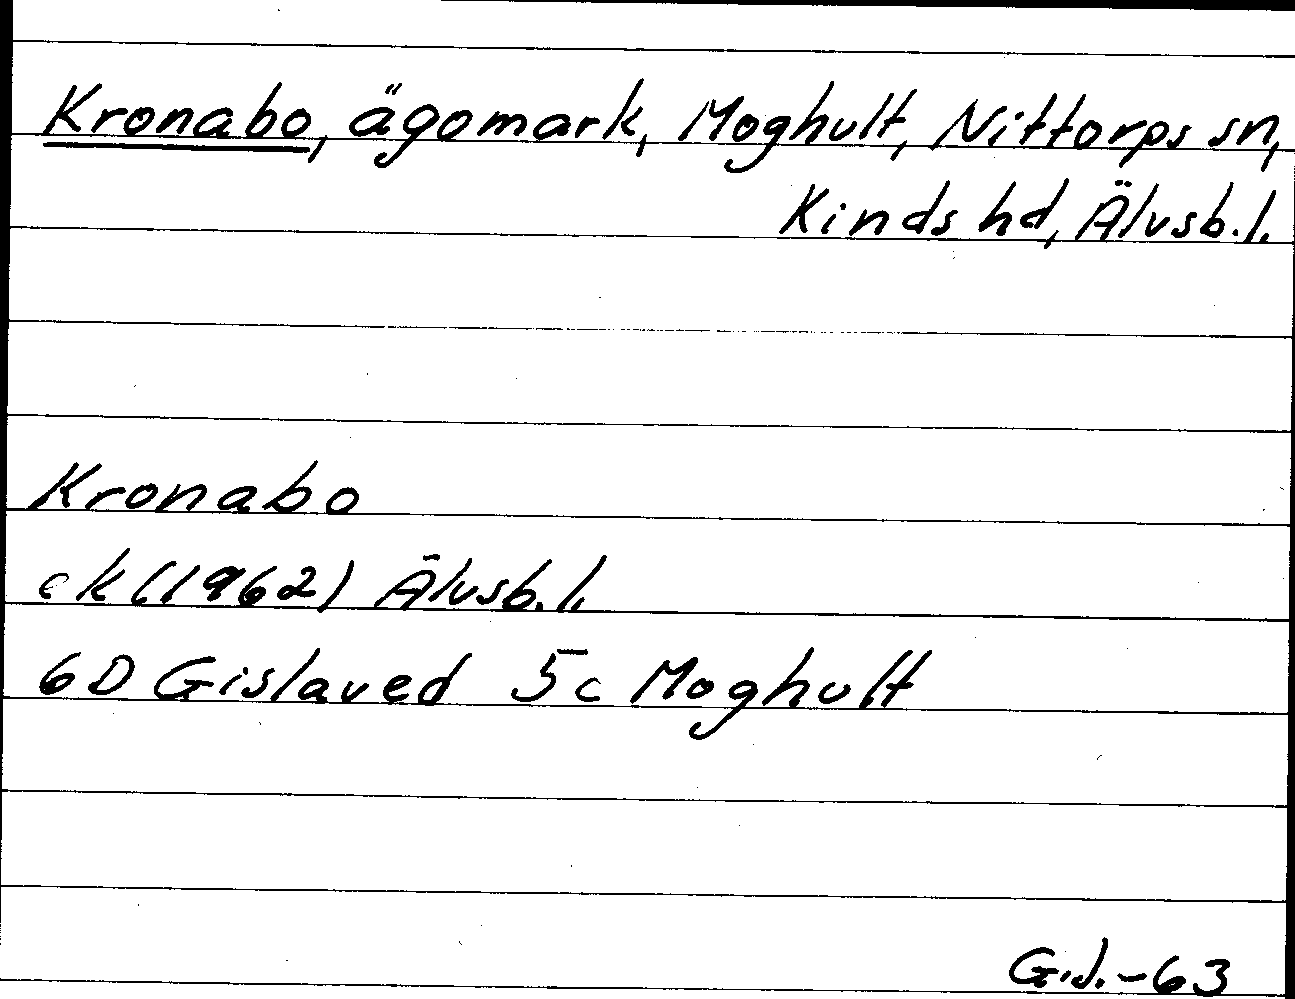 Kronabo, ägomark, Moghult, Nittorps sn,
Kinds hd, Älvsb. l.
Kronabo
ek (1962) Älvsb. l.
6D Gislaved 5c Moghult
G.J. -63